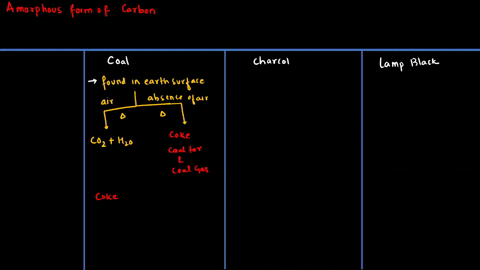 Amorphous form of Carbon
Coal
Charcol
Lamp Black
→ found in earth surface
air absence of air
Δ Δ
CO2 + H2O
Coke
Coal tar
&
Coal Gas
Coke